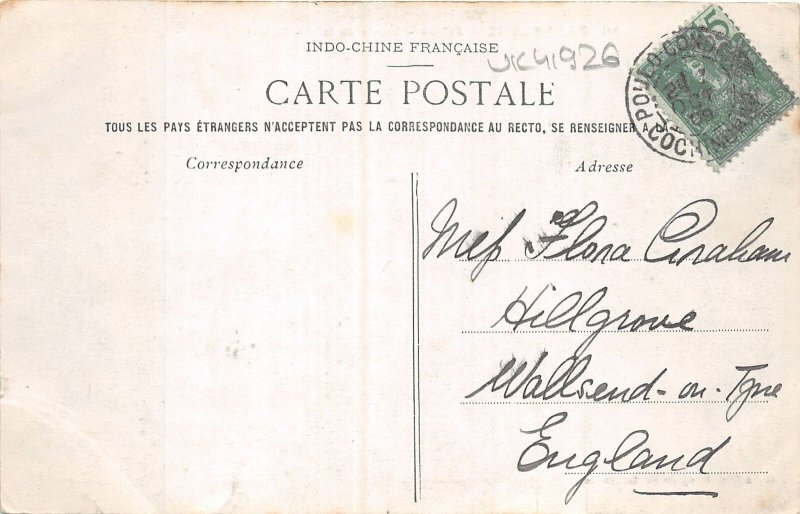 INDO-CHINE FRANÇAISE
UK41926
CARTE POSTALE
TOUS LES PAYS ÉTRANGERS N'ACCEPTENT PAS LA CORRESPONDANCE AU RECTO, SE RENSEIGNER A LA
Correspondance
Adresse
5
POULO-CONDORE
Flora Graham
Hillgrove
Wallsend-on-Tyne
England